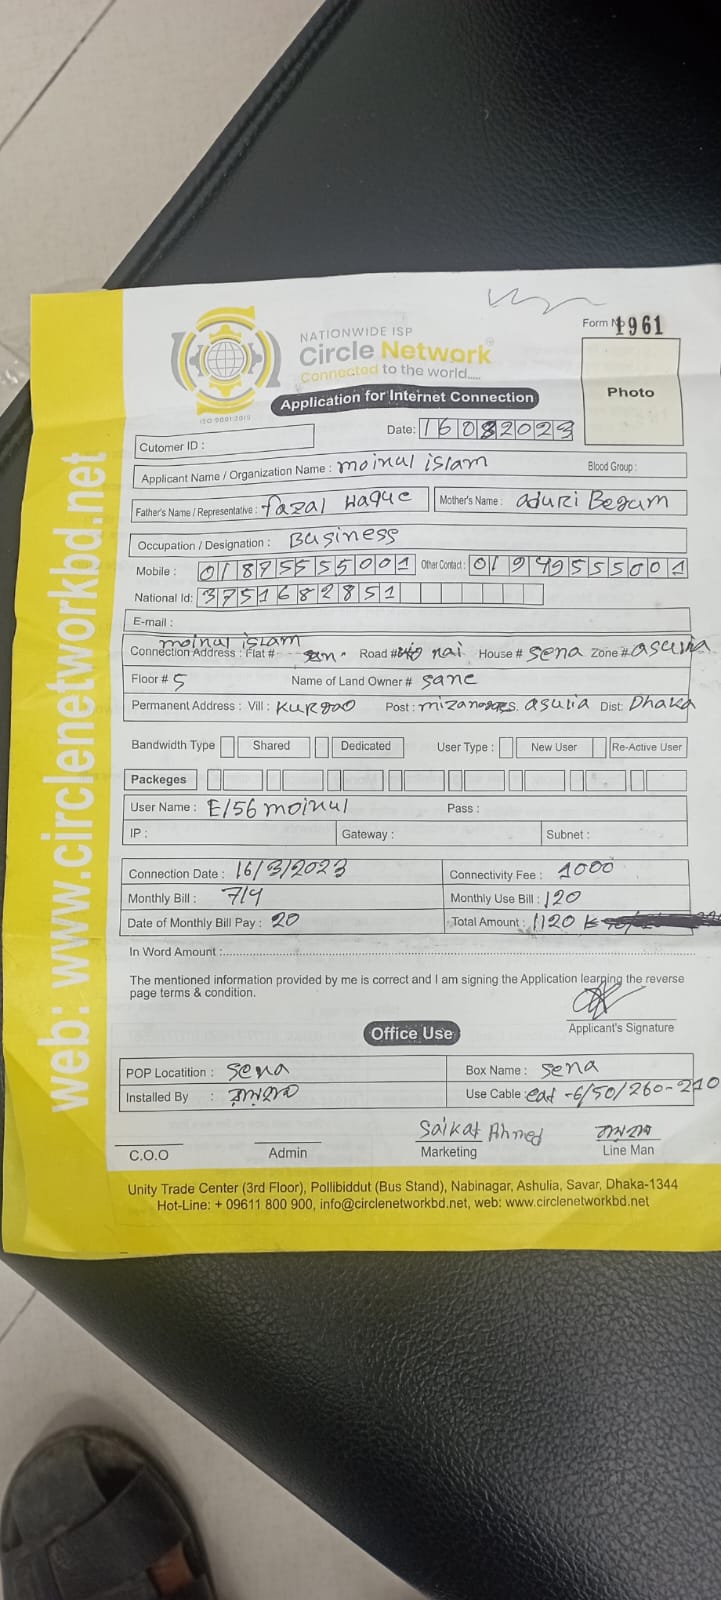 NATIONWIDE ISP
Circle Network
Connected to the world.....
ISO 9001:2015
Form No 1961
Photo
Application for Internet Connection
Date: 16032023
Cutomer ID :
Applicant Name / Organization Name : moinul islam Blood Group :
Father's Name / Representative : fazal Haque Mother's Name : aduri Begum
Occupation / Designation : Business
Mobile : 01875555001 Other Contact : 01949555001
National Id: 3751682851
E-mail :
moinul islam
Connection Address : Flat # Road # nai House # sena Zone # asulia
Floor # 5 Name of Land Owner # sane
Permanent Address : Vill : Kurgao Post : asulia Dist: Dhaka
Bandwidth Type Shared Dedicated User Type : New User Re-Active User
Packeges
User Name : E/56 moinul Pass :
IP : Gateway : Subnet :
Connection Date : 16/3/2023 Connectivity Fee : 1000
Monthly Bill : 714 Monthly Use Bill : 120
Date of Monthly Bill Pay : 20 Total Amount : 1120
In Word Amount :
The mentioned information provided by me is correct and I am signing the Application learning the reverse
page terms & condition.
Applicant's Signature
Office Use
POP Locatition : sena Box Name : sena
Installed By : Use Cable : cat -6/50/260-210
Saikat Ahmed
C.O.O Admin Marketing Line Man
Unity Trade Center (3rd Floor), Pollibiddut (Bus Stand), Nabinagar, Ashulia, Savar, Dhaka-1344
Hot-Line: + 09611 800 900, info@circlenetworkbd.net, web: www.circlenetworkbd.net
web: www.circlenetworkbd.net